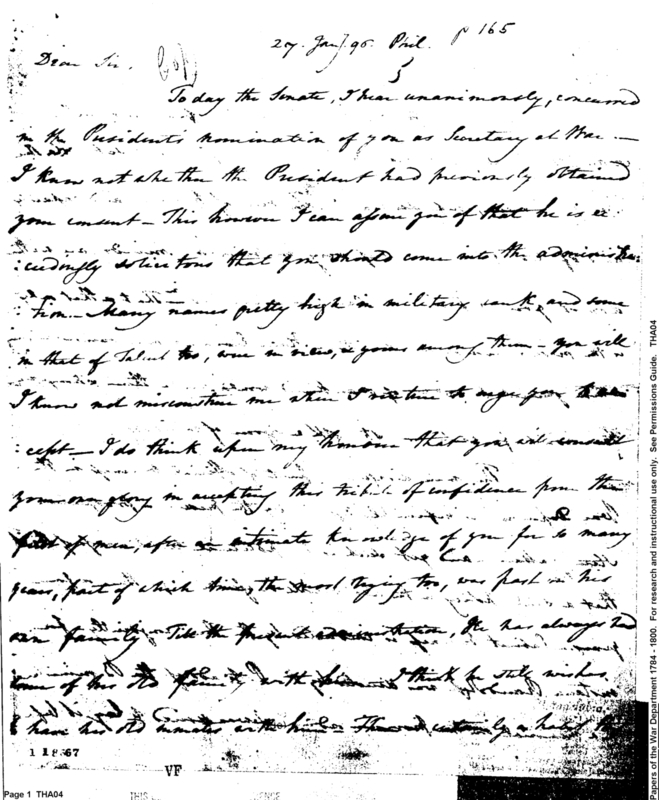 27. Jany. 96. Phil. p 165
Dear Sir, Copy
To day the Senate, I hear unanimously, concurred
in the President's nomination of you as Secretary at War —
I know not whether the President had previously obtained
your consent — This however I can assure you of that he is ex
:ceedingly solicitous that you should come into the administra:
:tion — Many names pretty high in military rank, and some
in that of Talent too, were in view, & yours among them — you will
I know not misconstrue me when I venture to urge you to ac
:cept — I do think upon my honour that you will consult
your own glory in accepting this tribute of confidence from the
first of men, after an intimate knowledge of you for so many
years, part of which time, the most trying too, was past in his
own family — Till the present administration, He has always had
some of his old family with him — I think he still wishes
to have his old inmates with him — There certainly
1 1867
VF
Page 1 THA04
THIS
Papers of the War Department 1784 - 1800. For research and instructional use only. See Permissions Guide. THA04